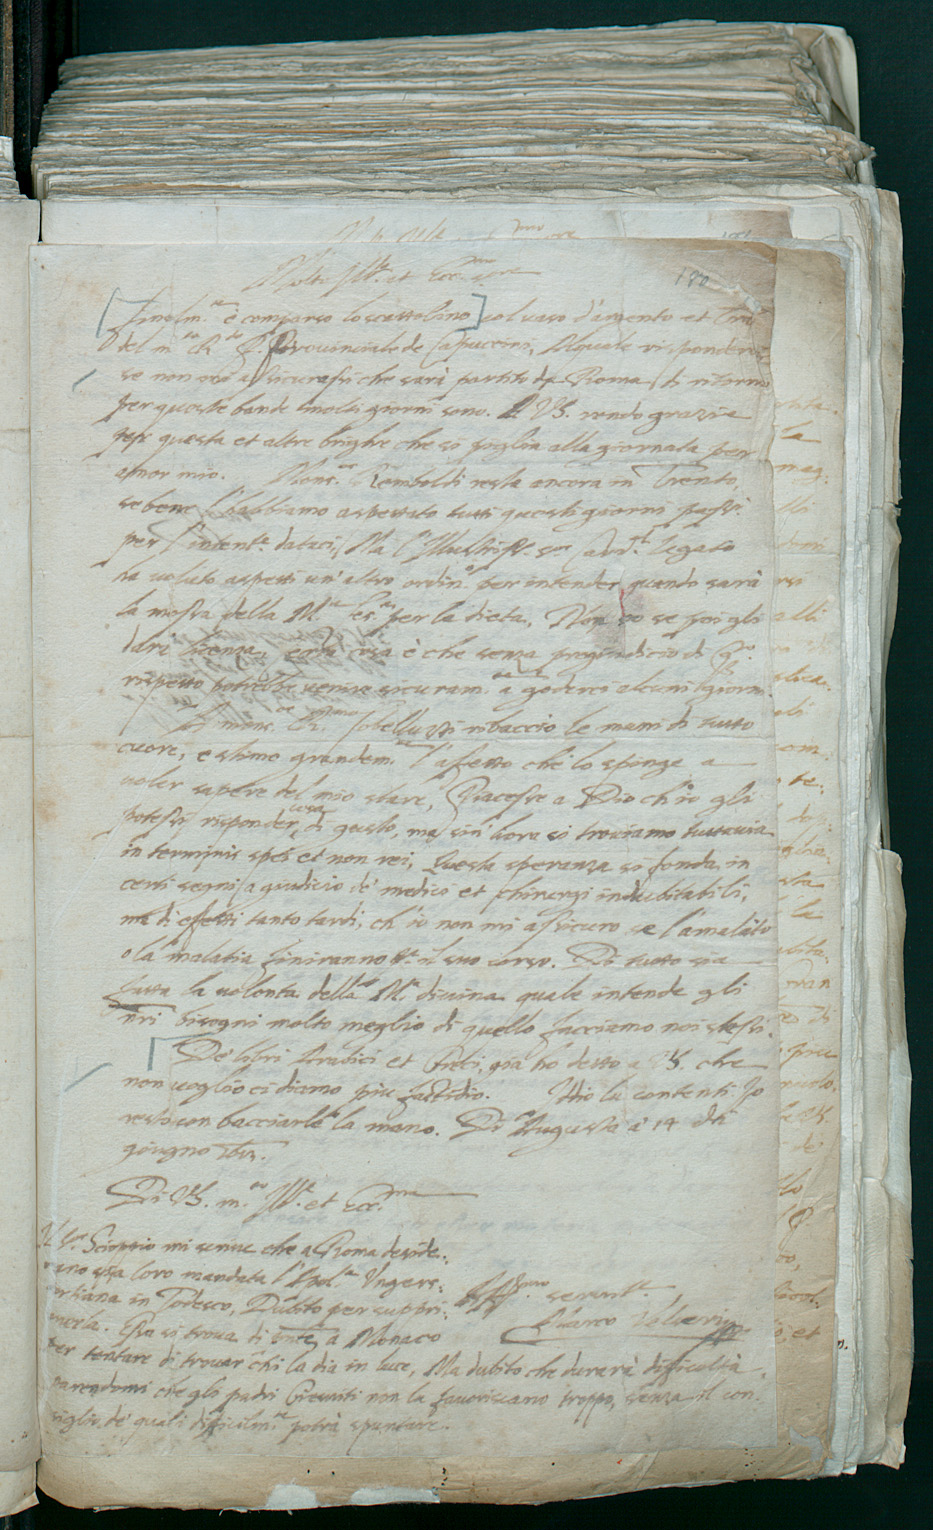 180
Molto Ill.re et Ecc.mo
Finalm.te è comparso lo scattolino col vaso d'argento et
del m.to R.do P. Provinciale de Capuccini, Al quale risponderei
se non mi assicurassi che sarà partito da Roma di ritorno
per queste bande molti giorni sono. A VS. rendo grazie
per questa et altre brighe che si piglia alla giornata per
amor mio. Mons.r Remboldi resta ancora in Trento,
se bene l'habbiamo aspettato tutti questi giorni passi.
per l'intent.e dataci, Ma l'Illustriss. Card.l legato
ha voluto aspetti un'altro ordin.o per intender quando sarà
la mossa della M.tà Ces.a per la dieta, Non so se poi gli
darà licenza, certa cosa è che senza pregiudicio di q.to
rispetto potrebbe venire sicuram.te a goderci alcuni giorni.
A mons.r R.mo Cobelluzzi ribaccio le mani di tutto
cuore, e stimo grandem. l'affetto che lo sponge a
voler sapere del mio stare, Piacesse a Dio ch'io gli
potessi risponder cosa di gusto, ma sin'hora si troviamo tuttavia
in terminis spei et non rei, Questa speranza si fonda in
certi segni a giudicio de' medici et chirurgi indubitabili,
ma di effetti tanto tardi, ch'io non mi assicuro se l'amalato
o la malatia finiranno il suo corso. Di tutto sia
fatta la volontà della M.tà divina quale intende gli
nri bisogni molto meglio di quello facciamo noi stessi.
De' libri Arabici et Greci, già ho detto a VS. che
non voglio ci diamo più fastidio. Iddio la contenti. Io
resto con bacciarle la mano. Di Augusta a 14 di
giugno 1613.
Di VS. m.to Ill.re et Ecc.ma
Il S.r Scioppio mi scrive che a Roma deside-
rano sia loro mandata l'Apol.a Ungers-
dorfiana in Todesco, Dubito per suppri-
merla. Essa si trova di pnte a Monaco
per tentare di trovar chi la dia in luce, Ma dubito che durarà difficoltà
parendomi che gli padri Giesuiti non la favoriscano troppo, senza il con-
siglio de' quali difficilm.te potrà spuntare.
Aff.mo servit.e
Marco Velseri